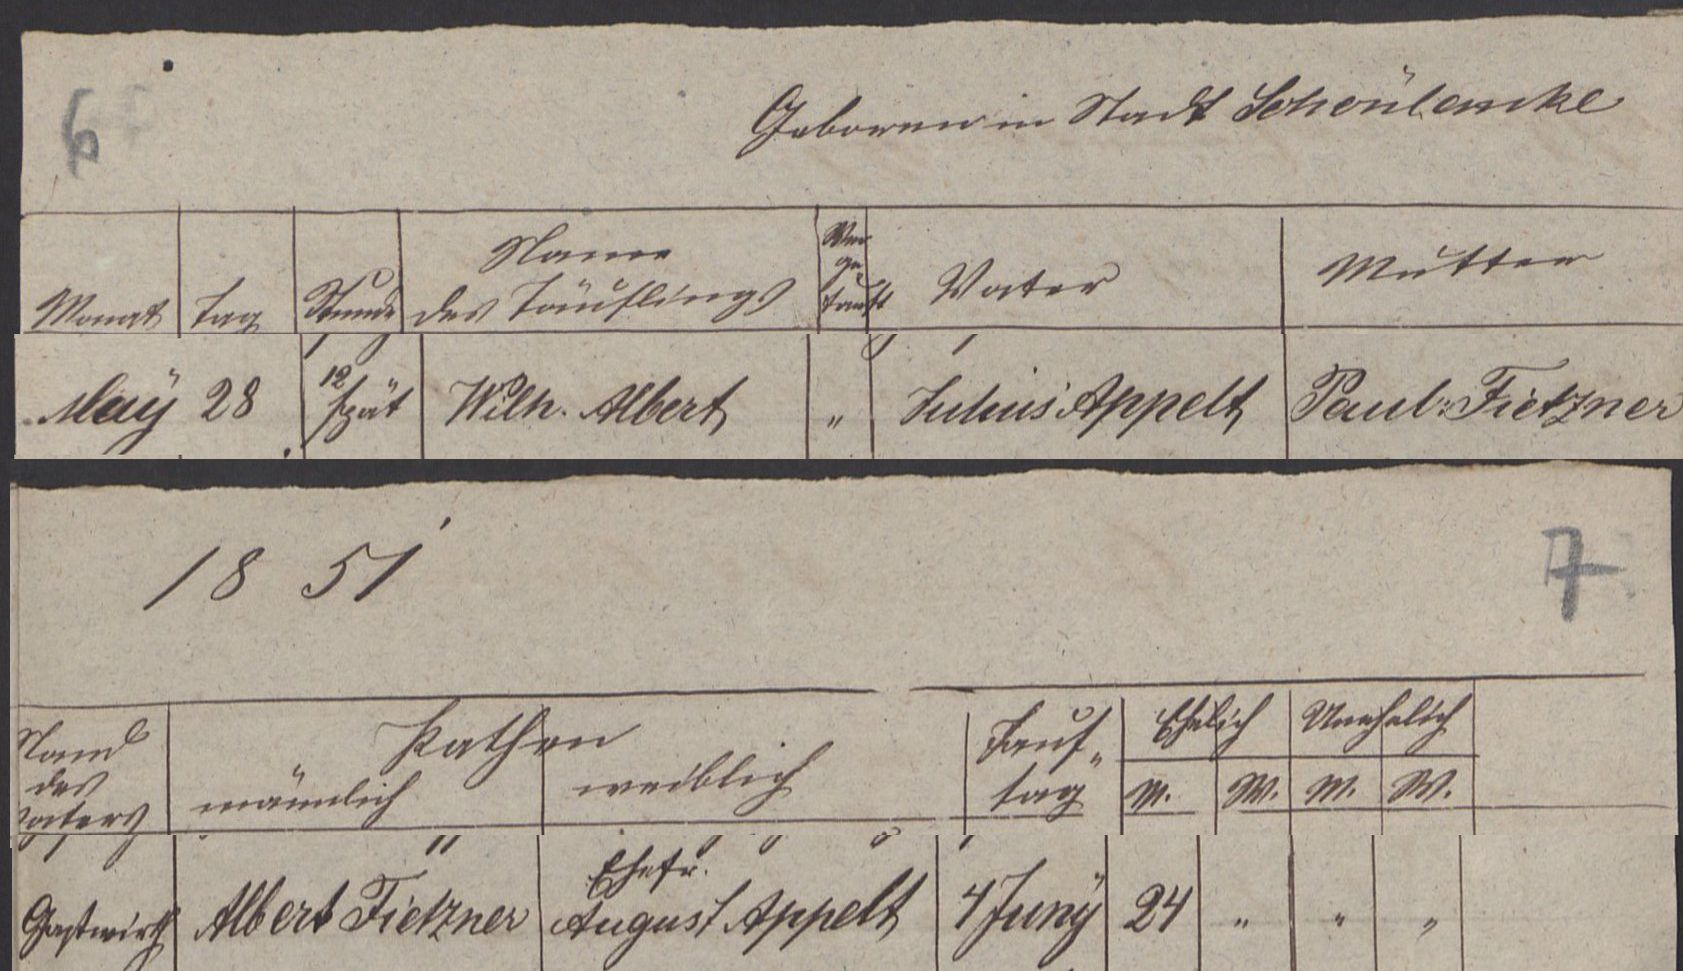 6
Geboren in Stadt Schönlancke
Monat Tag Stunde Name des Täuflings Wer ge- tauft Vater Mutter
Maÿ 28 12 spät Wilh. Albert " Julius Appelt Paul: Fietzner
1851 7
Stand des Vaters Pathen männlich weiblich Tauf- tag Ehelich M. W. Unehelich M. W.
Gastwirth Albert Fietzner Ehefr. August Appelt 4 Junÿ 24 " " "